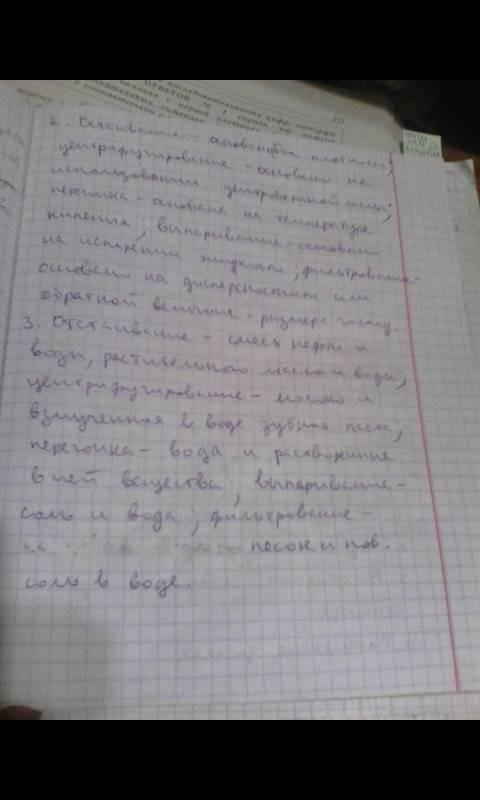 последовательность цифр, которую
ОТВЕТОВ № 1 справа от номера
с первой клеточки
2. Отстаивание - основано на плотности;
центрифугирование - основано на
использовании центробежной силы;
перегонка - основана на температуре
кипения; выпаривание - основано
на испарении жидкости; фильтрование -
основано на дисперсности или
обратной величине - размера частиц.
3. Отстаивание - смесь нефти и
воды, растительного масла и воды;
центрифугирование - молоко и
взмученная в воде зубная паста;
перегонка - вода и растворимые
в ней вещества; выпаривание -
соль и вода; фильтрование -
песок и пов.
соль в воде.